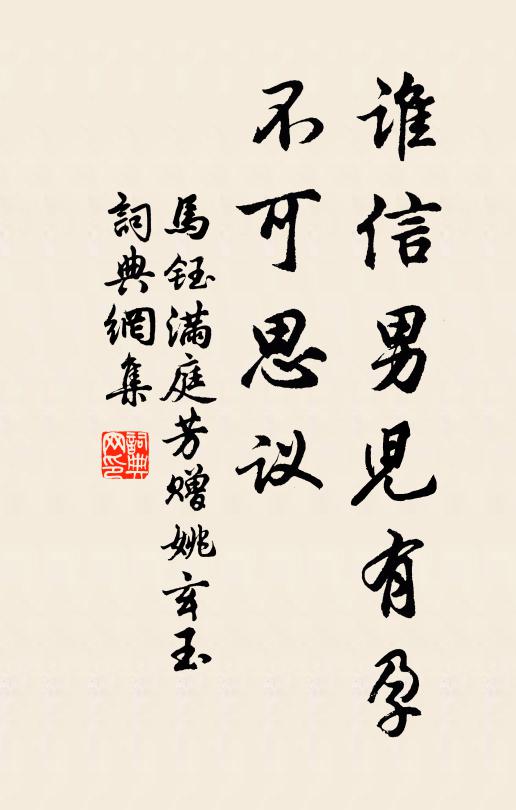 谁信男児有孕
不可思议
馬鈺満庭芳赠姚玄玉
詞典網集
詞典网印